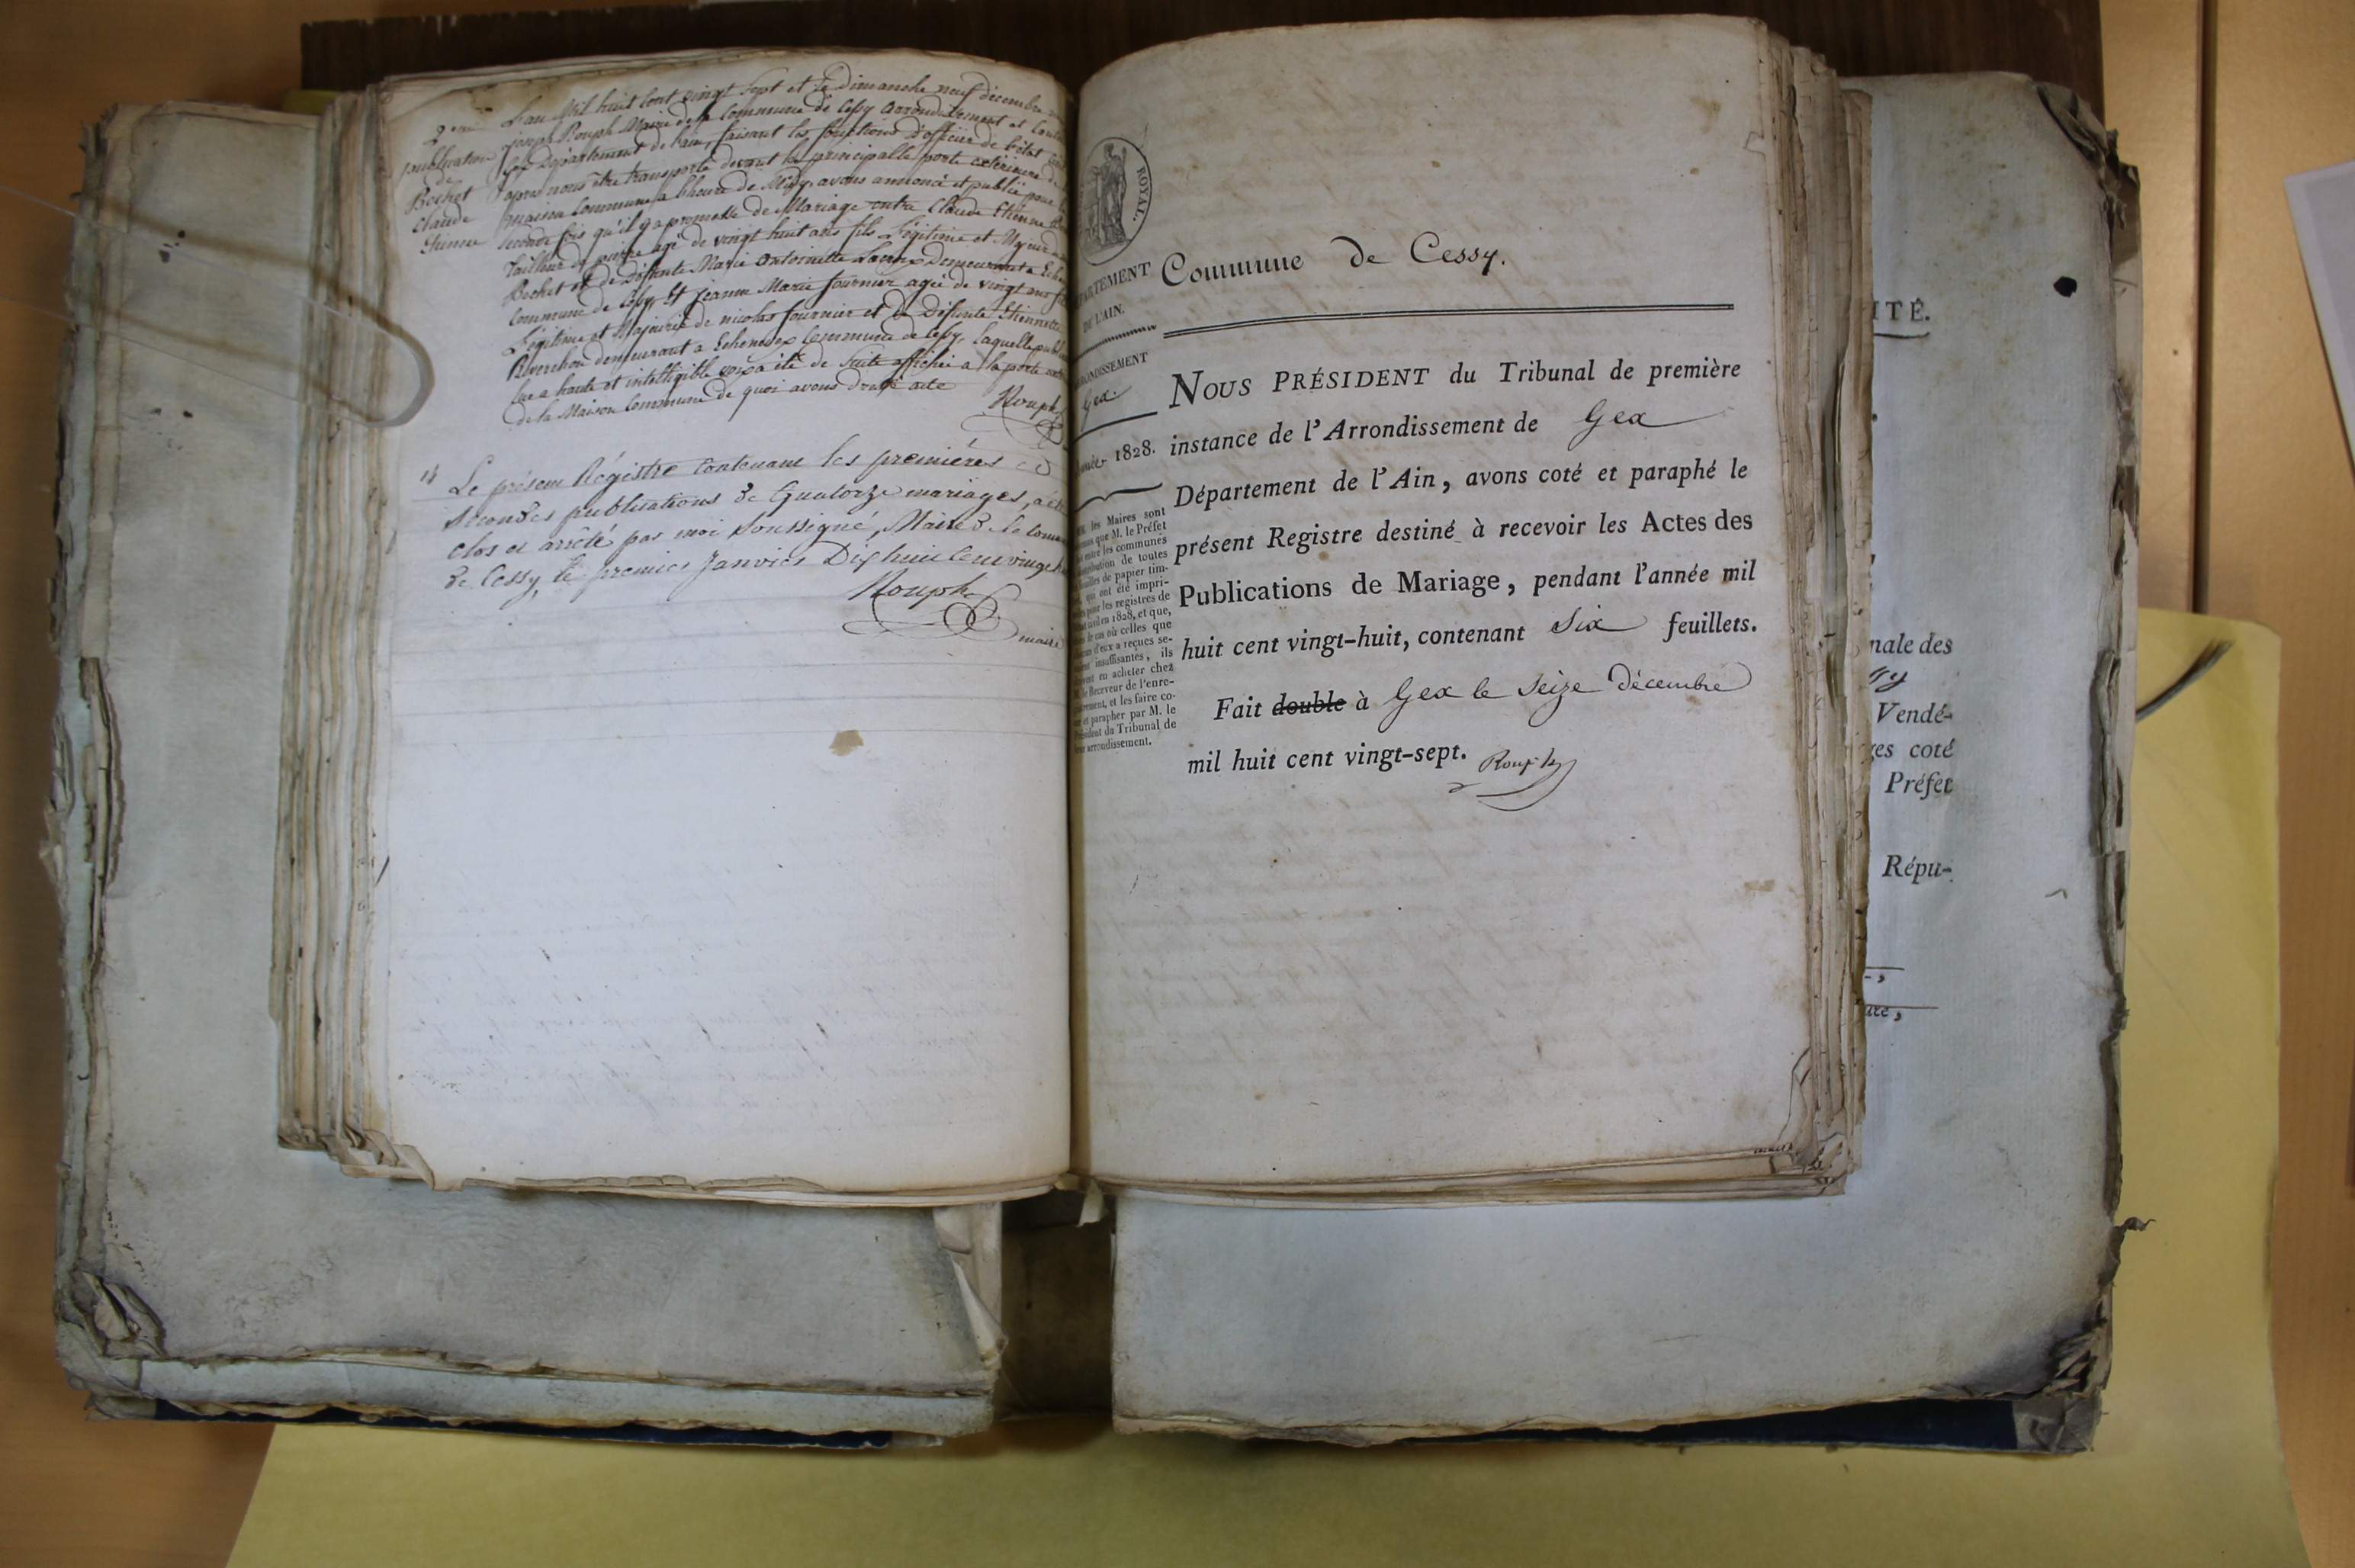 2eme
publication
de
Bochet
Claude
Etienne
L'an Mil huit Cent vingt Sept et le dimanche neuf décembre
joseph Rouph Maire de la Commune de Cessy arrondissement et Canton
Gex Département de l'ain, faisant les fonctions d'officier de l'état
après nous être transporté devant la principalle porte extérieure de
maison Commune a l'heure de Midy, avons annoncé et publié pour la
seconde fois qu'il y a promesse de Mariage entre Claude Etienne
Tailleur de pierre agé de vingt huit ans fils Légitime et Majeur
Bochet et de Défunte Marie Antoinette Lacroix demeurant a
Commune de Cessy Et Jeanne Marie fournier agée de vingt
Légitime et Majeure de nicolas fournier et de Défunte Etiennette
Reverchon demeurant a Echenevex Commune de Cessy, Laquelle
lue a haute et intelligible voix a été de Suite affichée a la porte
de la Maison Commune de quoi avons dressé acte
Rouph
14 Le présent Régistre Contenant les premières et
secondes publications de Quatorze mariages, a été
clos et arrêté par moi soussigné, Maire de la
de Cessy, le premier Janvier Dix huit Cent vingt
Rouph
maire
ROYAL.
PARTEMENT
DE L'AIN.
RONDISSEMENT
Gex.
1828.
les Maires sont
que M. le Préfet
entre les communes
tribution de toutes
feuilles de papier tim-
qui ont été impri-
pour les registres de
civil en 1828, et que,
le cas où celles que
d'eux a reçues se-
insuffisantes, ils
en acheter chez
le Receveur de l'enre-
, et les faire co-
et parapher par M. le
Président du Tribunal de
arrondissement.
Commune de Cessy.
NOUS PRÉSIDENT du Tribunal de première
instance de l'Arrondissement de Gex
Département de l'Ain, avons coté et paraphé le
présent Registre destiné à recevoir les Actes des
Publications de Mariage, pendant l'année mil
huit cent vingt-huit, contenant Six feuillets.
Fait double à Gex le Seize décembre
mil huit cent vingt-sept. Rouph
ITÉ.
nale des
Vendé-
ges coté
Préfet
Répu-